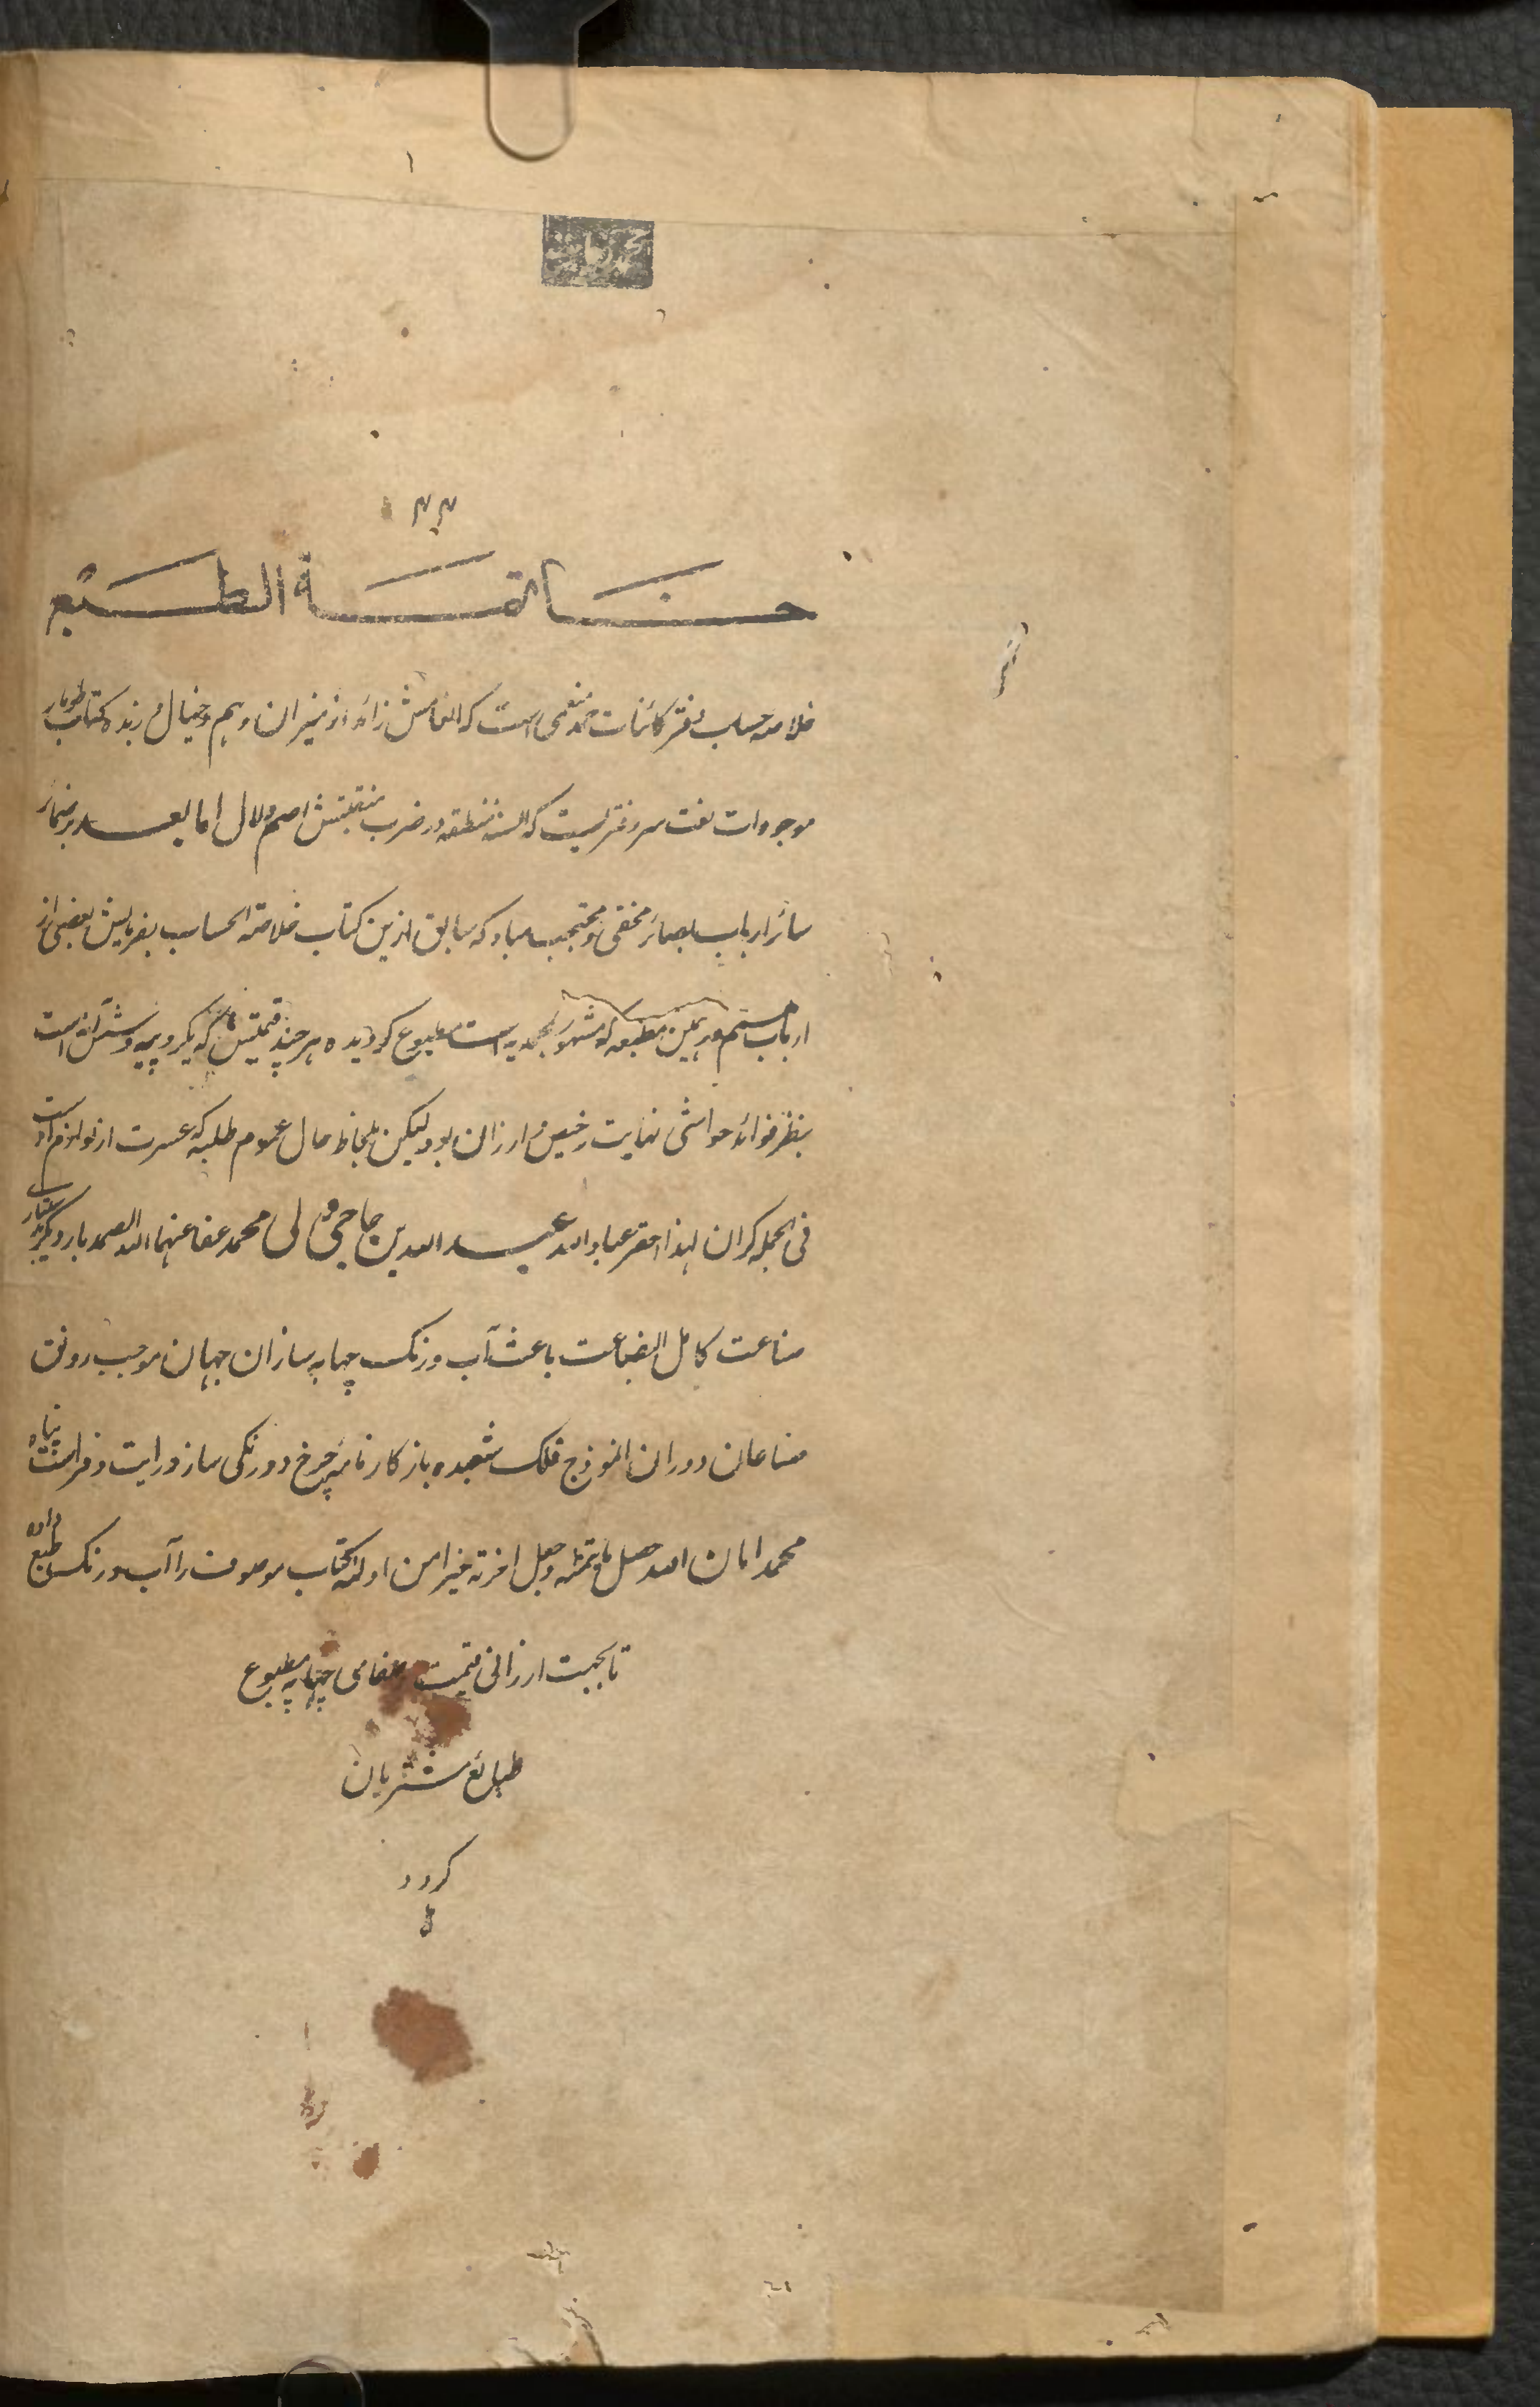 ۴۴
خاتمة الطبع
خلاصه حساب دفتر کائنات حمد منعمی است که انعامش زائد از میزان وہم وخیال و زبده کتاب طومار
موجودات نعت سرور دفتریست که السنه منطقه در ضرب منقبتش اصم ولال اما بعد بر ضمائر
سائر ارباب بصائر مخفی و محتجب مباد که سابق ازین کتاب خلاصة الحساب بفرمایش بعضی از
ارباب ہمم در ہمین مطبعه که مشہور بمحمدیه است مطبوع گردیده ہر چند قیمتش که یکروپیه وشش آنه است
بنظر فوائد حواشی نہایت رخیص و ارزان بود لیکن بلحاظ حال عموم طلبه که عسرت از لوازم آنہاست
فی الجمله گران لہذا احقر عباد الله عبد الله بن حاجی ولی محمد عفا عنہما الله الصمد بار دیگر
صناعت کامل البضاعت باعث آب ورنگ چہاپه سازان جہان موجب رونق
صناعان دوران انموذج فلک شعبده باز کارنامه چرخ دورنگی ساز درایت وفراست پناه
محمد امان الله حصل ما یتمناه وجعل اخرته خیرا من اولاه کتاب موصوف را آب ورنگ طبع داده
تا بجہت ارزانی قیمت وصفای چہاپه مطبوع
طبائع مشتریان
گردد